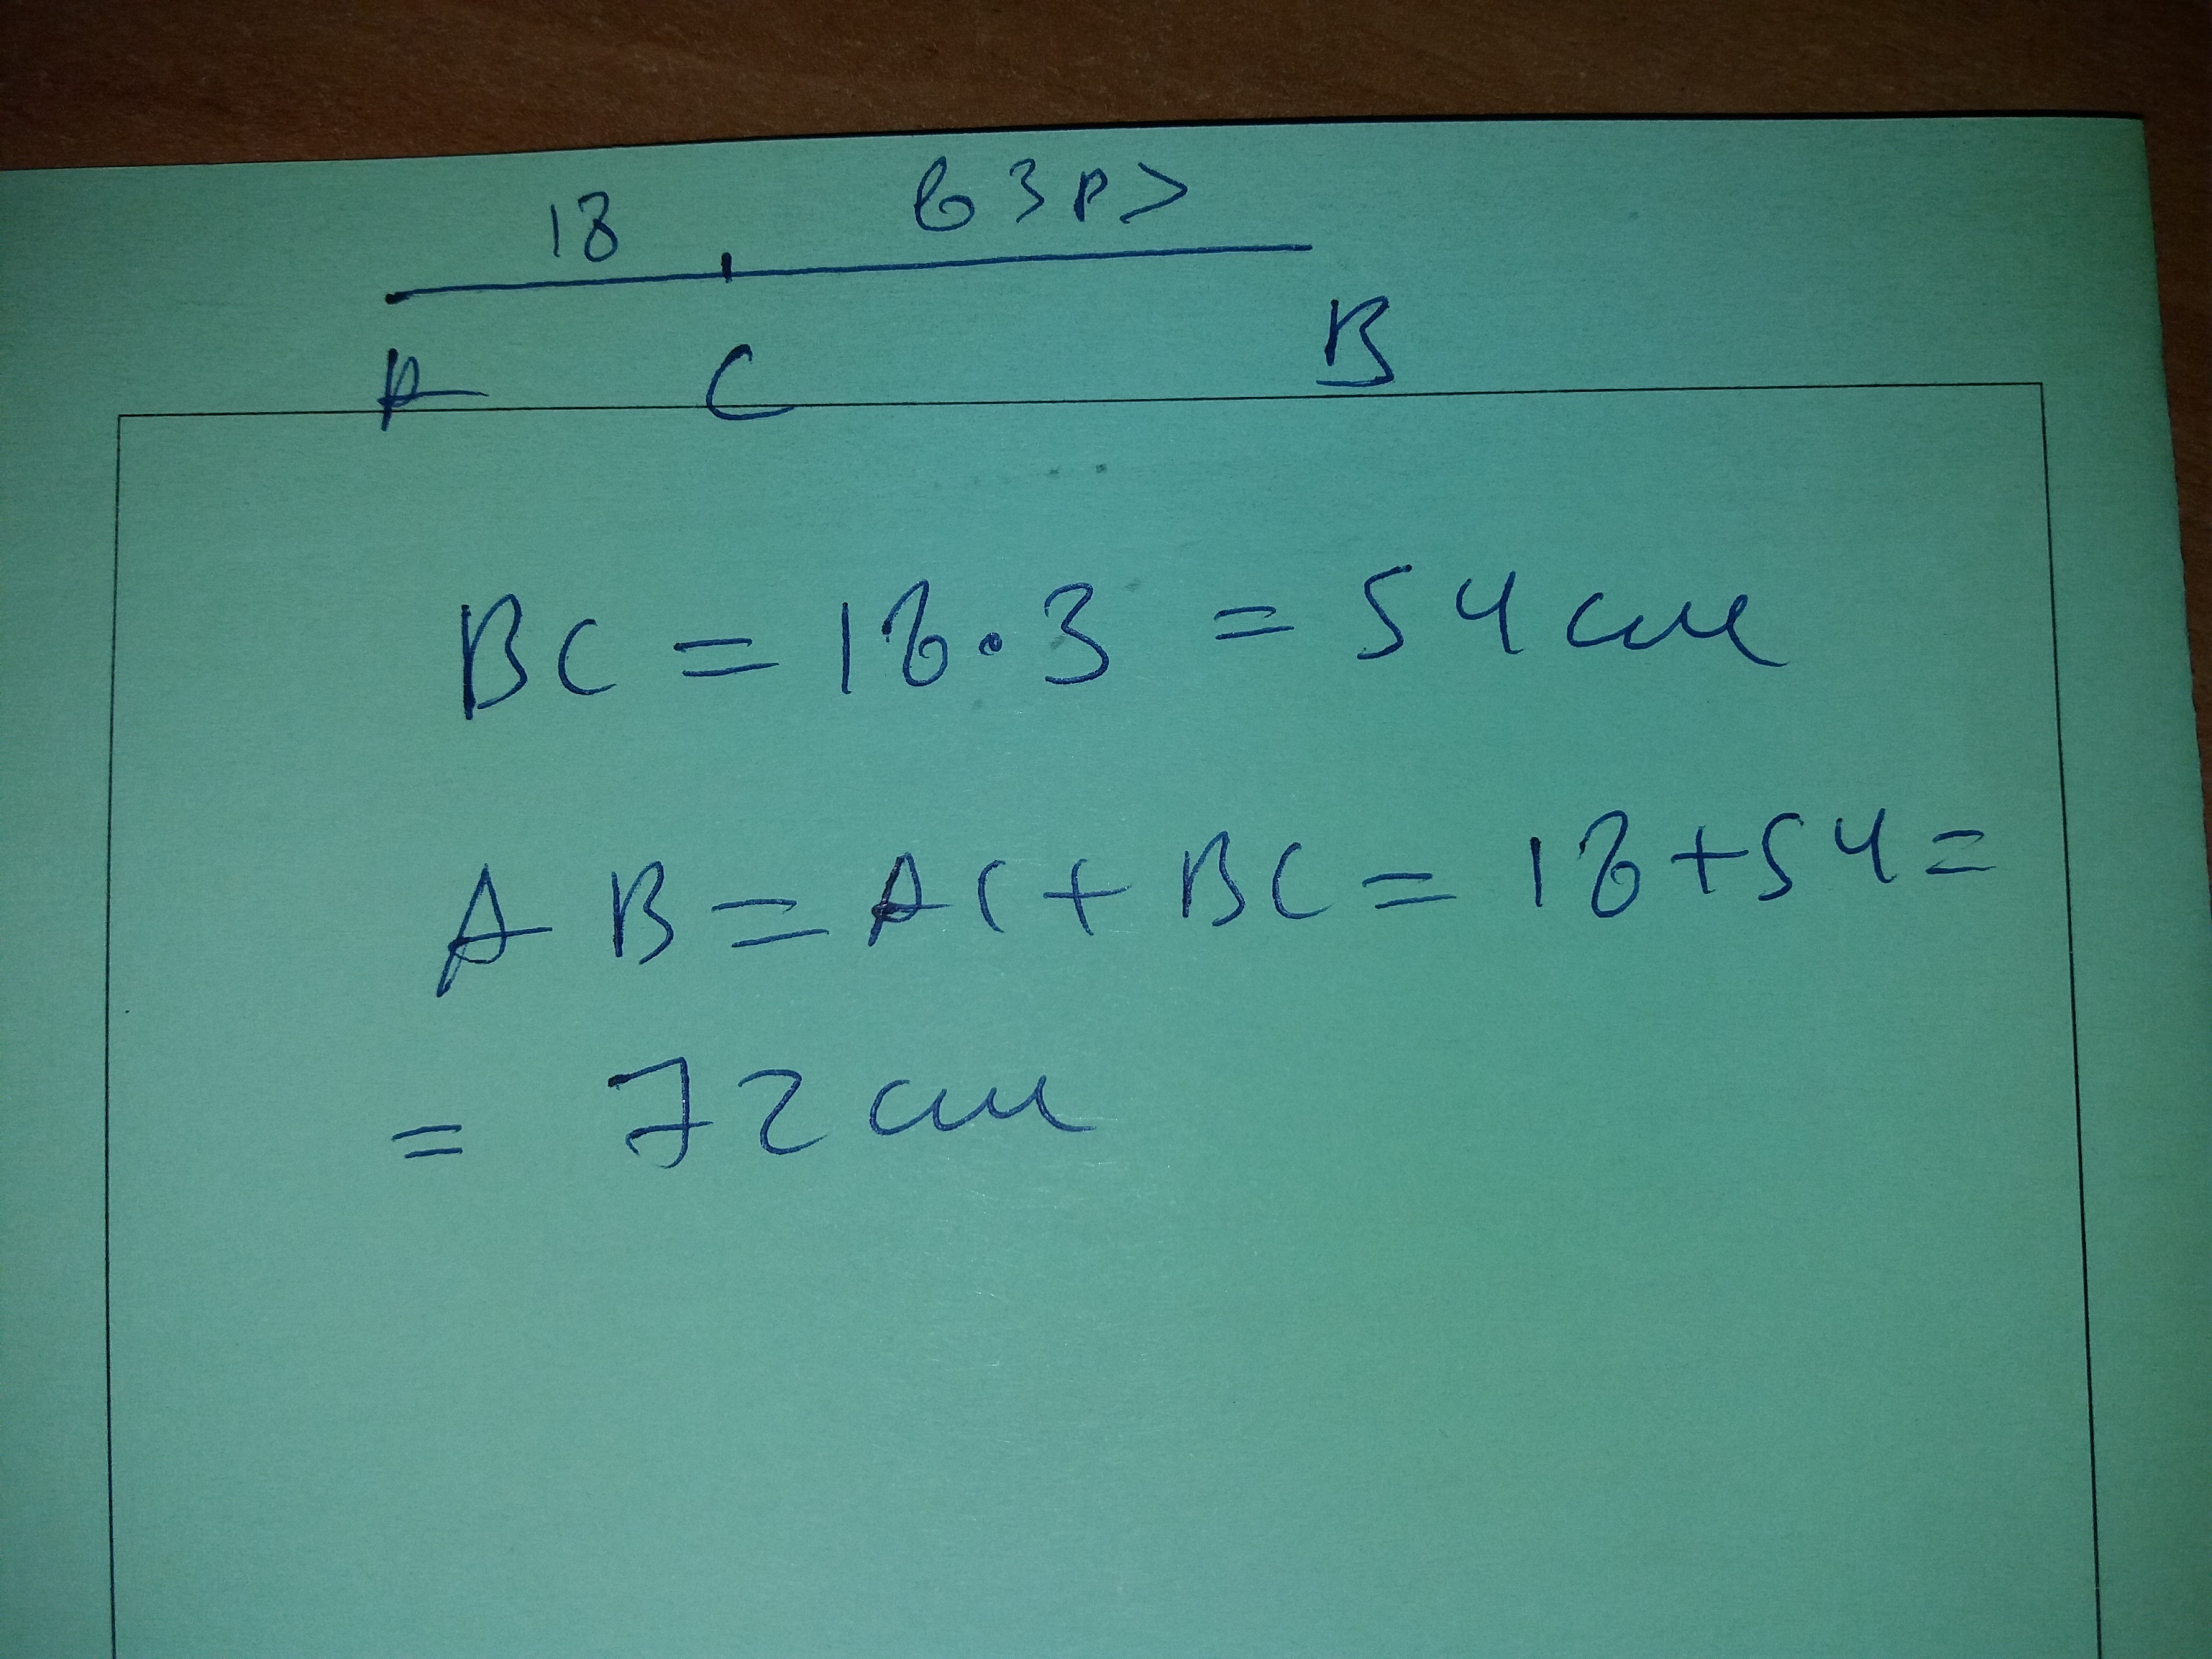 18 в 3р >
A C B
BC = 18 · 3 = 54 см
AB = AC + BC = 18 + 54 =
= 72 см